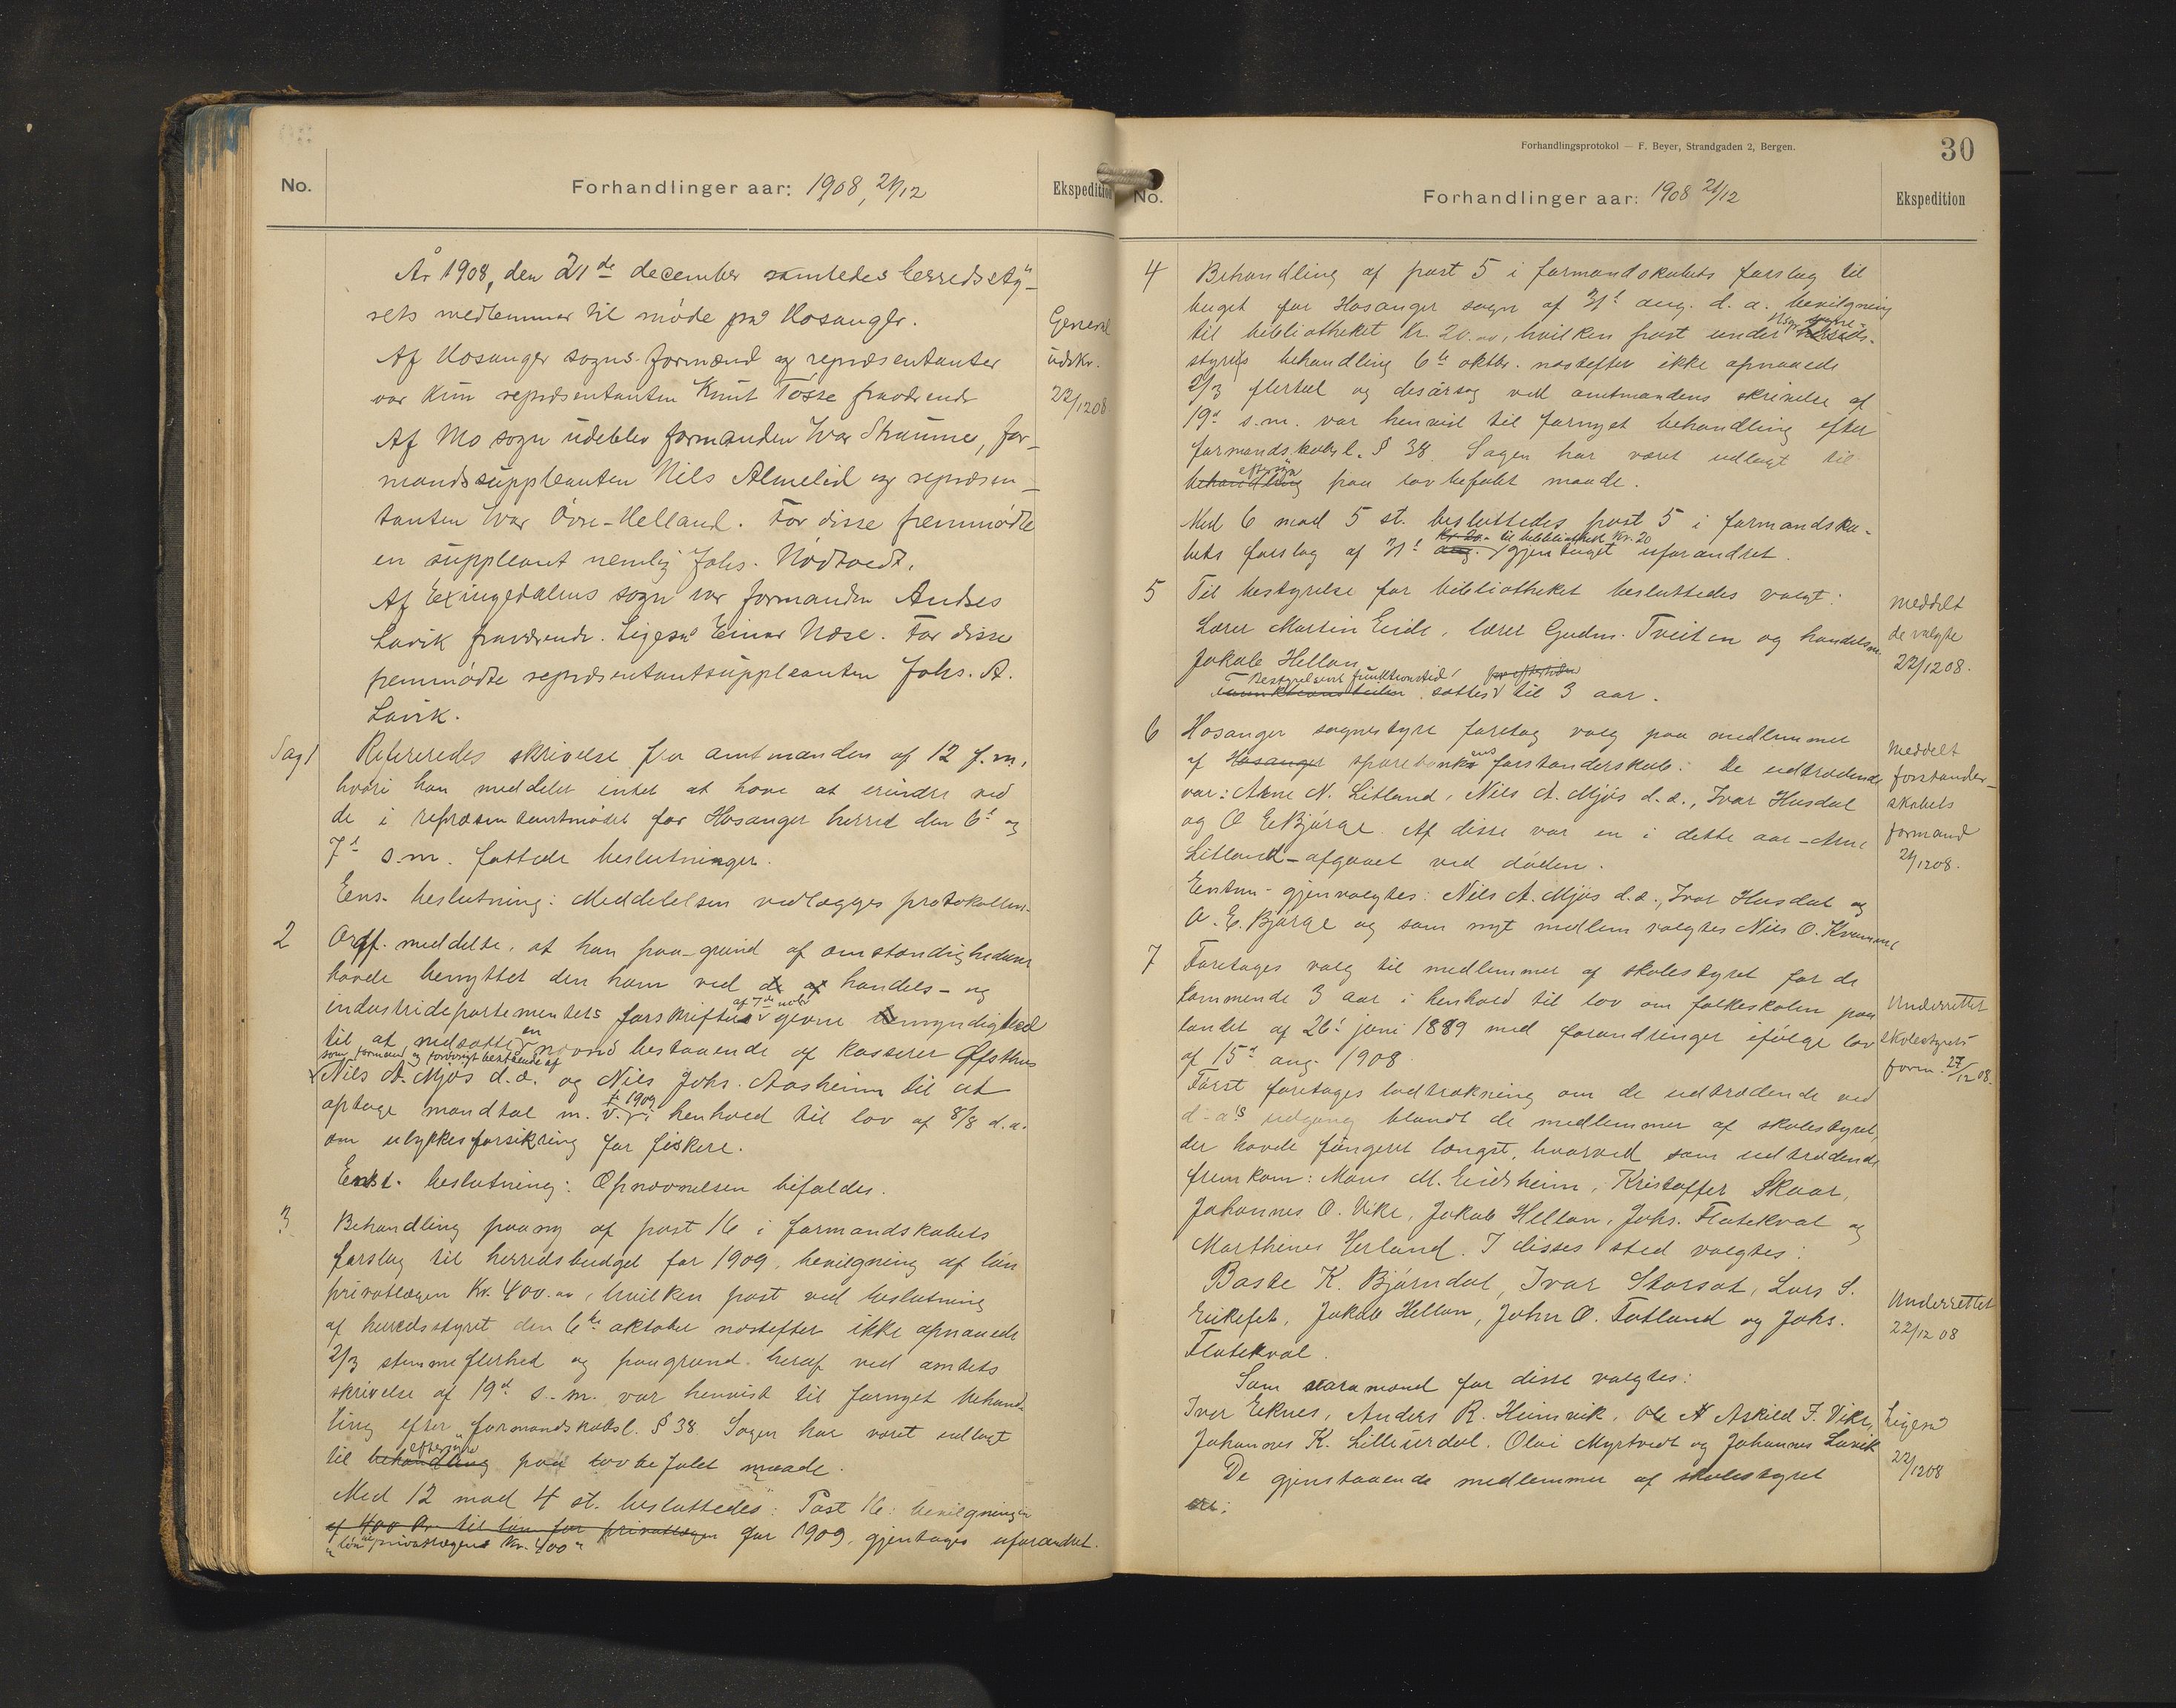 No.
Forhandlinger aar: 1908, 21/12
Ekspedition
År 1908, den 21de december samledes herredssty-
rets medlemmer til møde paa Hosanger.
Af Hosanger sogns formænd og repræsentanter
var kun repræsentanten Knut Tosse fraværende
Af Mo sogn udeblev formanden Ivar Straume, for-
mandssuppleanten Nils Almelid og repræsen-
tanten Ivar Övre-Helland. For disse fremmødte
en suppleant nemlig Johs. Nødtvedt.
Af Exingedalens sogn var formanden Andres
Lavik fraværende. Ligesaa Einar Næse. For disse
fremmødte repræsentantsuppleanten Johs. A.
Lavik.
General
udskr.
22/12 08
Sag 1
Refereredes skrivelse fra amtmanden af 12 f.m.
hvori han meddeler intet at have at erindre ved
de i repræsentantmødet for Hosanger herred den 6te og
7de s.m. fattede beslutninger.
Eens. beslutning: Meddelelsen vedlægges protokollen.
2
Ordf. meddelte, at han paa grund af omstændighederne
havde benyttet den ham ved handels- og
industridepartementets forskrifter af 7de novbr givne myndighed
til at nedsætte en nævnd bestaaende af kasserer Øfsthus
som formand og forøvrigt bestaaende af
Nils A. Mjøs d.æ. og Nils Johs. Aasheim til at
optage mandtal m. v. f. 1909 i henhold til lov af 8/8 d.a.
om ulykkesforsikring for fiskere.
Enst. beslutning: Opnævnelsen bifaldes.
3
Behandling paany af post 16 i formandskabets
forslag til herredsbudget for 1909, bevilgning af løn
privatlægen Kr. 400.00, hvilken post ved beslutning
af herredsstyret den 6te oktober næstefter ikke opnaaede
2/3 stemmeflerhed og paagrund heraf ved amtets
skrivelse af 19de s.m. var henvist til fornyet behand-
ling efter formandskabsl. § 38. Sagen har været udlagt
til behandling eftersyn paa lovbefalet maade.
Med 12 mod 4 st. besluttedes: Post 16: bevilgningen
af 400 kr. til løn for privatlægen for 1909, gjentages uforandret.
"løn privatlægen Kr. 400"
Forhandlingsprotokol — F. Beyer, Strandgaden 2, Bergen.
30
No.
Forhandlinger aar: 1908 21/12
Ekspedition
4
Behandling af post 5 i formandskabets forslag til
buget for Hosanger sogn af 31te aug. d.a. bevilgning
til bibliotheket Kr. 20.00, hvilken post under Hsgr. sogne- herreds-
styrets behandling 6te oktbr. næstefter ikke opnaaede
2/3 flertal og desårsag ved amtmandens skrivelse af
19de s.m. var henvist til fornyet behandling efter
formandskabsl. § 38. Sagen har været udlagt til
behandling eftersyn paa lovbefalet maade.
Med 6 mod 5 st. besluttedes post 5 i formandska-
bets forslag af 31te aug. til bibliothek Kr. 20 gjentaget uforandret.
5
Til bestyrelse for bibliotheket besluttedes valgt:
Lærer Martin Eide, lærer Gudm. Tveiten og handelsm.
Jakob Hellan
Bestyrelsens funktionstid sattes til 3 aar.
meddelt
de valgte
22/12 08.
6
Hosanger sognestyre foretog valg paa medlemmer
af Hosanger sparebankens forstanderskab: De udtrædende
var: Arne N. Litland, Nils A. Mjøs d.æ., Ivar Husdal
og O. E. Bjørge. Af disse var en i dette aar - Arne
Litland - afgaaet ved døden.
Enstm. gjenvalgtes: Nils A. Mjøs d.æ., Ivar Husdal og
O. E. Bjørge og som nyt medlem valgtes Nils O. Kvamme
Meddelt
forstander-
skabets
formand
24/12 08.
7
Foretages valg til medlemmer af skolestyret for de
kommende 3 aar i henhold til lov om folkeskolen paa
landet af 26de juni 1889 med forandringer ifølge lov
af 15de aug. 1908.
Først foretages lodtrækning om de udtrædende ved
d.a's udgang blandt de medlemmer af skolestyret,
der havde fungeret længst, hvorved som udtrædende
fremkom: Mons M. Eidsheim, Kristoffer Skaar,
Johannes O. Vike, Jakob Hellan, Johs. Flatekval og
Marthines Herland. I disses sted valgtes:
Baste K. Bjørndal, Ivar Storset, Lars S.
Eikefet, Jakob Hellan, John O. Fotland og Johs.
Flatekval.
Som varamænd for disse valgtes:
Iver Eknes, Anders R. Heimvik, Askild J. Vike,
Johannes K. Lilleurdal, Olai Myrtvedt og Johannes Lavik
De gjenstaaende medlemmer af skolestyret
er:
Underrettet
skolestyrets
form. 22/12 08.
Underrettet
22/12 08
Ligesaa
22/12 08